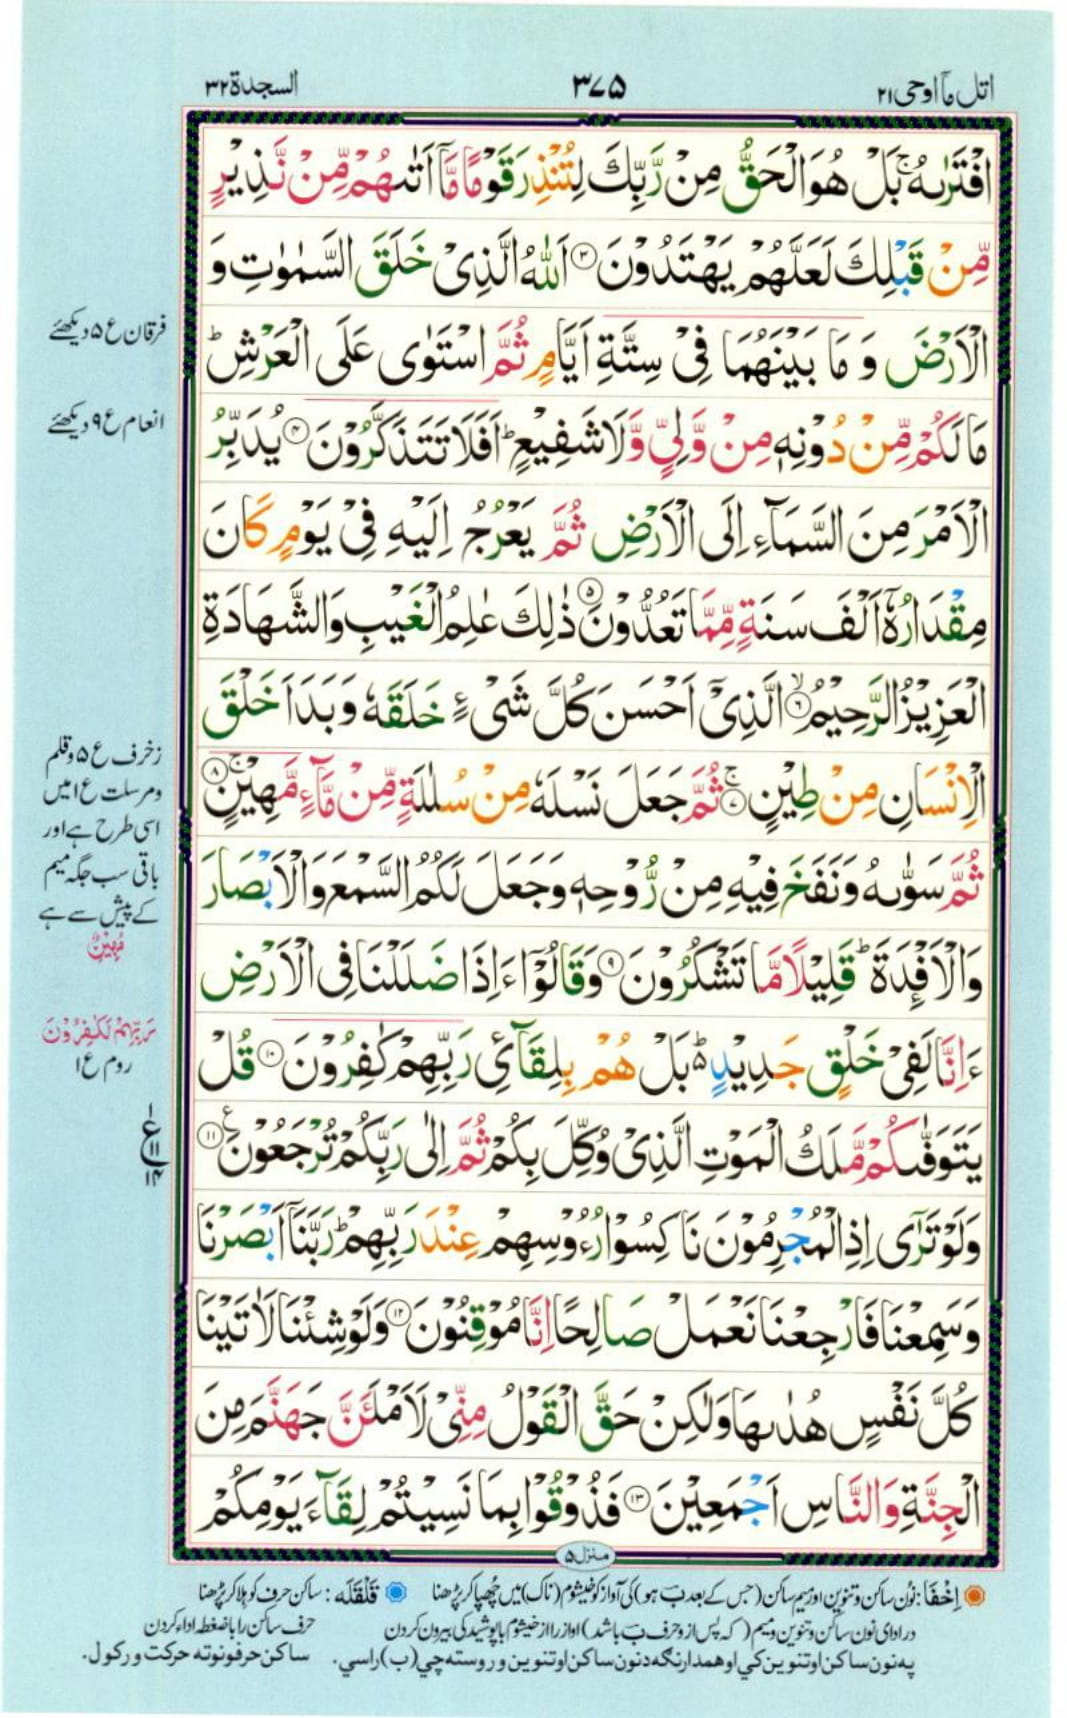 اتل مآ اوحی۲۱
۳۷۵
السجدة۳۲
افْتَرٰىهُ ۚ بَلْ هُوَ الْحَقُّ مِنْ رَّبِّكَ لِتُنْذِرَ قَوْمًا مَّاۤ اَتٰىهُمْ مِّنْ نَّذِيْرٍ
مِّنْ قَبْلِكَ لَعَلَّهُمْ يَهْتَدُوْنَ ۳ اَللّٰهُ الَّذِىْ خَلَقَ السَّمٰوٰتِ وَ
الْاَرْضَ وَ مَا بَيْنَهُمَا فِىْ سِتَّةِ اَيَّامٍ ثُمَّ اسْتَوٰى عَلَى الْعَرْشِ ؕ
مَا لَكُمْ مِّنْ دُوْنِهٖ مِنْ وَّلِىٍّ وَّلَا شَفِيْعٍ ؕ اَفَلَا تَتَذَكَّرُوْنَ ۴ يُدَبِّرُ
الْاَمْرَ مِنَ السَّمَآءِ اِلَى الْاَرْضِ ثُمَّ يَعْرُجُ اِلَيْهِ فِىْ يَوْمٍ كَانَ
مِقْدَارُهٗۤ اَلْفَ سَنَةٍ مِّمَّا تَعُدُّوْنَ ۵ ذٰلِكَ عٰلِمُ الْغَيْبِ وَالشَّهَادَةِ
الْعَزِيْزُ الرَّحِيْمُ ۙ ۶ الَّذِىْۤ اَحْسَنَ كُلَّ شَىْءٍ خَلَقَهٗ وَ بَدَاَ خَلْقَ
الْاِنْسَانِ مِنْ طِيْنٍ ۚ ۷ ثُمَّ جَعَلَ نَسْلَهٗ مِنْ سُلٰلَةٍ مِّنْ مَّآءٍ مَّهِيْنٍ ۚ ۸
ثُمَّ سَوّٰىهُ وَ نَفَخَ فِيْهِ مِنْ رُّوْحِهٖ وَجَعَلَ لَكُمُ السَّمْعَ وَالْاَبْصَارَ
وَالْاَفْـِٕدَةَ ؕ قَلِيْلًا مَّا تَشْكُرُوْنَ ۹ وَ قَالُوْٓا ءَاِذَا ضَلَلْنَا فِى الْاَرْضِ
ءَاِنَّا لَفِىْ خَلْقٍ جَدِيْدٍ ؕ۬ بَلْ هُمْ بِلِقَآئِ رَبِّهِمْ كٰفِرُوْنَ ۱۰ قُلْ
يَتَوَفّٰىكُمْ مَّلَكُ الْمَوْتِ الَّذِىْ وُكِّلَ بِكُمْ ثُمَّ اِلٰى رَبِّكُمْ تُرْجَعُوْنَ ع ۱۱
وَلَوْ تَرٰٓى اِذِ الْمُجْرِمُوْنَ نَاكِسُوْا رُءُوْسِهِمْ عِنْدَ رَبِّهِمْ ؕ رَبَّنَاۤ اَبْصَرْنَا
وَسَمِعْنَا فَارْجِعْنَا نَعْمَلْ صَالِحًا اِنَّا مُوْقِنُوْنَ ۱۲ وَلَوْ شِئْنَا لَاٰتَيْنَا
كُلَّ نَفْسٍ هُدٰىهَا وَلٰكِنْ حَقَّ الْقَوْلُ مِنِّىْ لَاَمْلَـَٔنَّ جَهَنَّمَ مِنَ
الْجِنَّةِ وَالنَّاسِ اَجْمَعِيْنَ ۱۳ فَذُوْقُوْا بِمَا نَسِيْتُمْ لِقَآءَ يَوْمِكُمْ
منزل۵
فرقان ع۵ دیکھئے
انعام ع۹ دیکھئے
زخرف ع۵ وقلم
ومرسلت ع۱میں
اسی طرح ہے اور
باقی سب جگہ میم
کے پیش سے ہے
مُّهِيْنٌ
رَبِّهِمْ لَكٰفِرُوْنَ
روم ع۱
۱
ع
۱۱
۱۴
اِخفَا: نُون ساکن وتنوین اورمیم ساکن (جس کے بعد بَ ہو) کی آواز کو خیشوم (ناک) میں چُھپا کر پڑھنا قَلْقَلَه: ساکن حرف کو ہلا کر پڑھنا
در ادای نون ساکن وتنوین ومیم (که پس از و حرف بَ باشد) اواز را از خیشوم با پوشیدگی بیرون کردن حرف ساکن را باضغطه ادا کردن
په نون ساکن او تنوین کي او همدارنګه د نون ساکن او تنوین وروسته چي (ب) راسي. ساکن حرفونو ته حرکت ورکول.